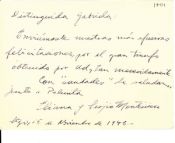 Distinguida Gabriela:
Enviámosle nuestras más efusivas
felicitaciones, por el gran triunfo
obtenido por Ud, tan merecidamente
Con "saudades" la saludan,
junto a Palmita
y Sergio Montecinos
de Noviembre de 1945.